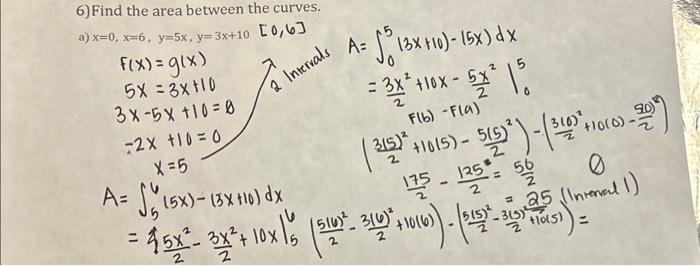 6)Find the area between the curves.
a) x=0, x=6, y=5x, y=3x+10 [0,6]
f(x)=g(x)
5x=3x+10
3x-5x+10=0
-2x+10=0
x=5
2 Intervals
A= ∫₀⁵ (3x+10)-(5x) dx
= 3x²/2 +10x - 5x²/2 |₀⁵
F(b) - F(a)
(3(5)²/2 +10(5) - 5(5)²/2) - (3(0)²/2 +10(0) - 5(0)²/2)
0
175/2 - 125/2 = 50/2
= 25 (Interval 1)
A= ∫₅⁶ (5x)-(3x+10) dx
= 5x²/2 - 3x²/2 + 10x |₅⁶ (5(6)²/2 - 3(6)²/2 + 10(6)) - (5(5)²/2 - 3(5)²/2 +10(5)) =